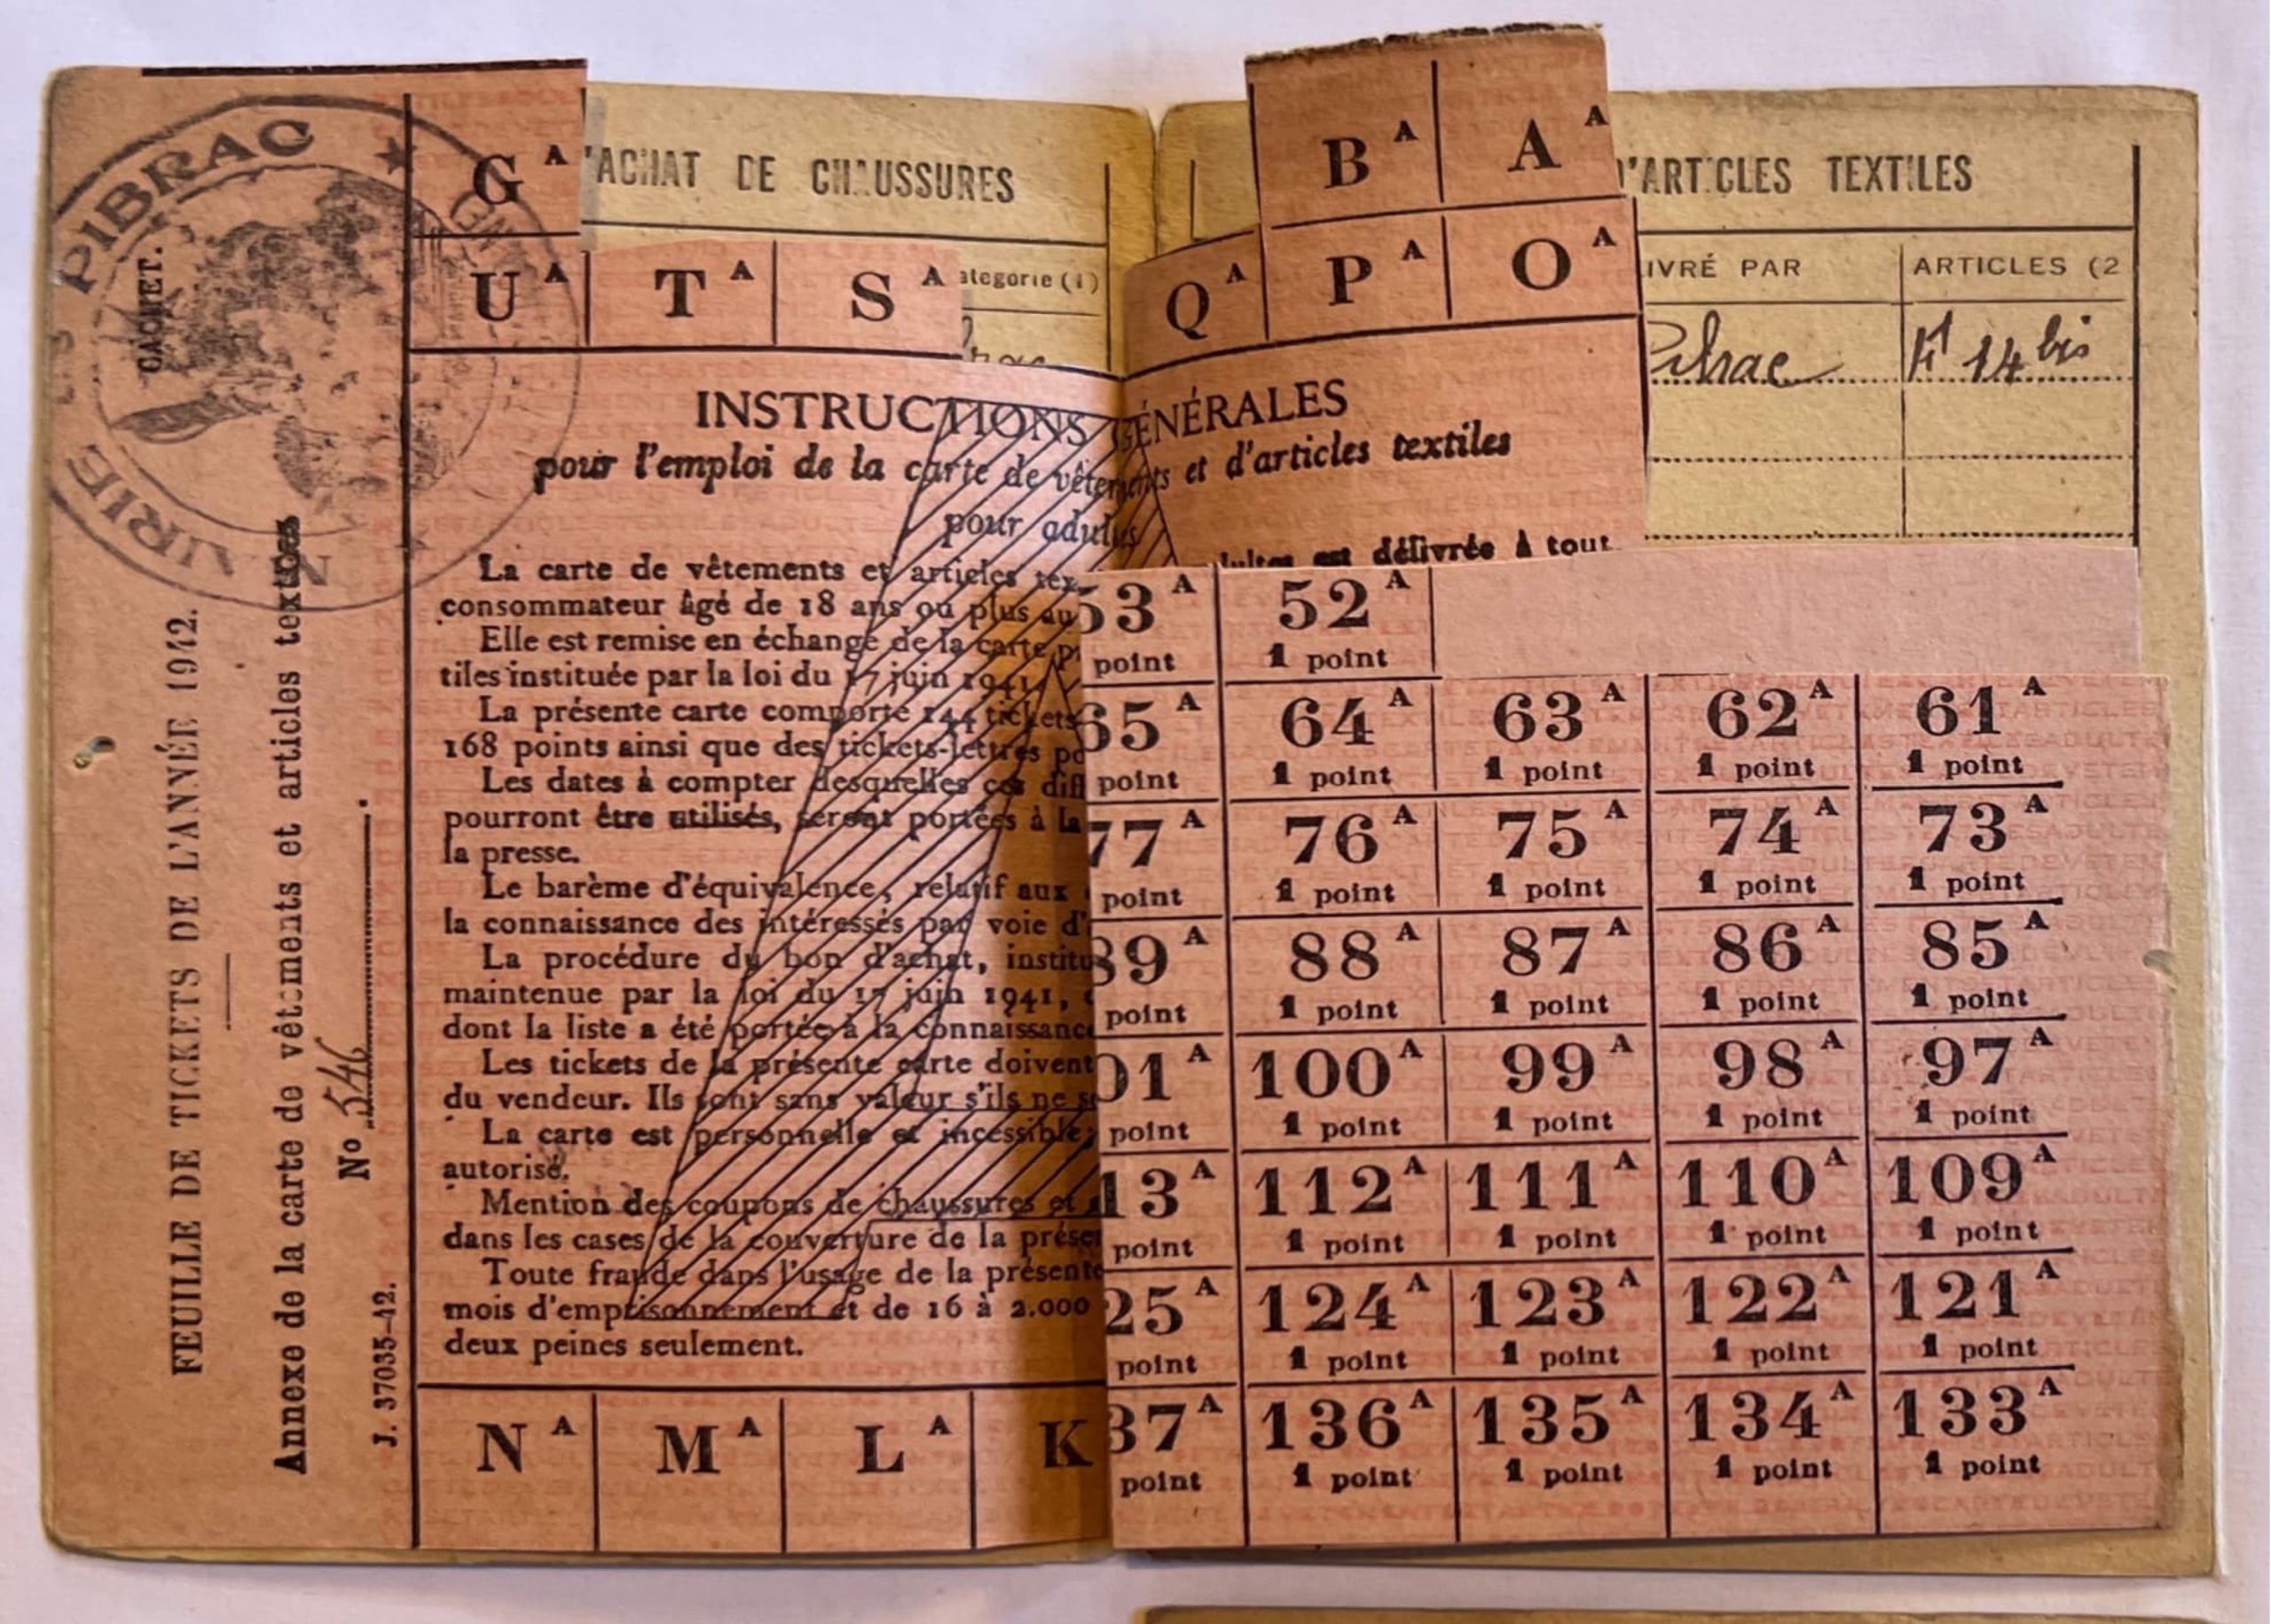 PIBRAC
MAIRIE
CACHET.
FEUILLE DE TICKETS DE L'ANNÉE 1942.
Annexe de la carte de vêtements et articles textiles
No 546
J. 37035-42.
G A
'ACHAT DE CHAUSSURES
B A A A
D'ARTICLES TEXTILES
U A T A S A
atégorie (1)
Q A P A O A
IVRÉ PAR
ARTICLES (2
Pibrac
14 bis
INSTRUCTIONS GÉNÉRALES
pour l'emploi de la carte de vêtements et d'articles textiles
pour adultes
La carte de vêtements et articles tex
dultes est délivrée à tout
consommateur âgé de 18 ans ou plus au
Elle est remise en échange de la carte p
tiles instituée par la loi du 17 juin 1941
La présente carte comporte 144 tickets
168 points ainsi que des tickets-lettres po
Les dates à compter desquelles ces diff
pourront être utilisés, seront portées à la
la presse.
Le barème d'équivalence, relatif aux
la connaissance des intéressés par voie d'
La procédure du bon d'achat, institu
maintenue par la loi du 17 juin 1941,
dont la liste a été portée à la connaissance
Les tickets de la présente carte doivent
du vendeur. Ils sont sans valeur s'ils ne s
La carte est personnelle et incessible,
autorisé.
Mention des coupons de chaussures et
dans les cases de la couverture de la prése
Toute fraude dans l'usage de la présente
mois d'emprisonnement et de 16 à 2.000
deux peines seulement.
N A M A L A K
53 A 52 A
point 1 point
65 A 64 A 63 A 62 A 61 A
point 1 point 1 point 1 point 1 point
77 A 76 A 75 A 74 A 73 A
point 1 point 1 point 1 point 1 point
89 A 88 A 87 A 86 A 85 A
point 1 point 1 point 1 point 1 point
01 A 100 A 99 A 98 A 97 A
point 1 point 1 point 1 point 1 point
13 A 112 A 111 A 110 A 109 A
point 1 point 1 point 1 point 1 point
25 A 124 A 123 A 122 A 121 A
point 1 point 1 point 1 point 1 point
37 A 136 A 135 A 134 A 133 A
point 1 point 1 point 1 point 1 point